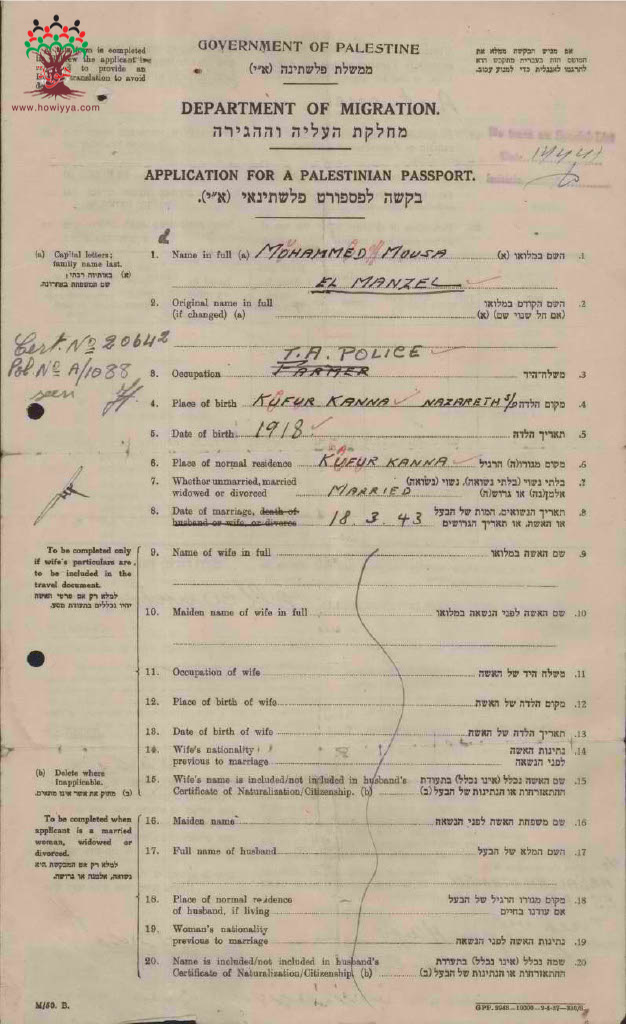 If this form is completed
www.howiyya.com
GOVERNMENT OF PALESTINE
ממשלת פלשתינה (א״י)
DEPARTMENT OF MIGRATION.
מחלקת העליה וההגירה
APPLICATION FOR A PALESTINIAN PASSPORT.
בקשה לפספורט פלשתינאי (א״י).
(a) Capital letters;
family name last.
(א) באותיות רבתי;
שם המשפחה באחרונה.
1. Name in full (a) MOHAMMED MOUSA השם במלואו (א) .1
EL MANZEL
2. Original name in full השם הקודם במלואו .2
(if changed) (a) (אם חל שנוי שם) (א)
Cert. No 20642
Pol No A/1088
seen
T.A. POLICE
3. Occupation FARMER משלח-היד .3
4. Place of birth KUFUR KANNA NAZARETH S/D מקום הלדה .4
5. Date of birth 1918 תאריך הלדה .5
6. Place of normal residence KUFUR KANNA מקום מגורו(ה) הרגיל .6
7. Whether unmarried, married בלתי נשוי (בלתי נשואה), נשוי (נשואה) .7
widowed or divorced MARRIED אלמן(נה) או גרוש(ה)
8. Date of marriage, death of תאריך הנשואים, המות של הבעל .8
husband or wife, or divorce 18.3.43 או האשה, או תאריך הגרושים
To be completed only
if wife's particulars are
to be included in the
travel document.
למלא רק אם פרטי האשה
יהיו נכללים בתעודת מסע.
9. Name of wife in full שם האשה במלואו .9
10. Maiden name of wife in full שם האשה לפני הנשואה במלואו .10
11. Occupation of wife משלח היד של האשה .11
12. Place of birth of wife מקום הלדה של האשה .12
13. Date of birth of wife תאריך הלדה של האשה .13
14. Wife's nationality נתינות האשה .14
previous to marriage לפני הנשואה
(b) Delete where
inapplicable.
(ב) מחוק את אשר אינו מתאים.
15. Wife's name is included/not included in husband's שם האשה נכלל (אינו נכלל) בתעודת .15
Certificate of Naturalization/Citizenship. (b) ההתאזרחות או הנתינות של הבעל (ב)
To be completed when
applicant is a married
woman, widowed or
divorced.
למלא רק אם המבקשת היא
נשואה, אלמנה או גרושה.
16. Maiden name שם משפחת האשה לפני הנשואה .16
17. Full name of husband השם המלא של הבעל .17
18. Place of normal residence מקום מגורו הרגיל של הבעל .18
of husband, if living אם עודנו בחיים
19. Woman's nationality
previous to marriage נתינות האשה לפני הנשואה .19
20. Name is included/not included in husband's שמה נכלל (אינו נכלל) בתעודת .20
Certificate of Naturalization/Citizenship. (b) ההתאזרחות או הנתינות של הבעל (ב)
M/50. B.